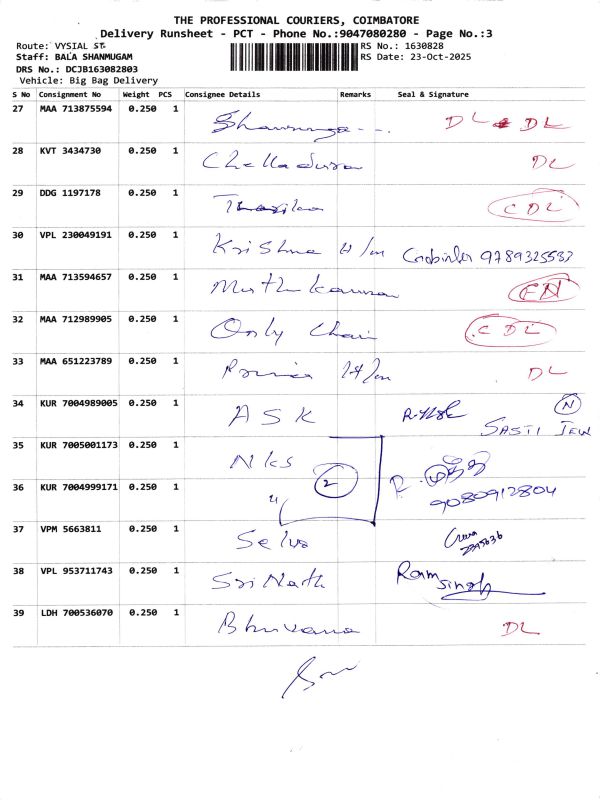 THE PROFESSIONAL COURIERS, COIMBATORE
Delivery Runsheet - PCT - Phone No.:9047080280 - Page No.:3
Route: VYSIAL ST
Staff: BALA SHANMUGAM
DRS No.: DCJB163082803
Vehicle: Big Bag Delivery
RS No.: 1630828
RS Date: 23-Oct-2025
S No Consignment No Weight PCS Consignee Details Remarks Seal & Signature
27 MAA 713875594 0.250 1 DL DL
28 KVT 3434730 0.250 1 Chelladurai DL
29 DDG 1197178 0.250 1 CDL
30 VPL 230049191 0.250 1 Krishna H/m 9789325583
31 MAA 713594657 0.250 1 Muthukumar
32 MAA 712989905 0.250 1 Only Chain CDL
33 MAA 651223789 0.250 1 H/m DL
34 KUR 7004989005 0.250 1 ASK N
SASTI JEW
35 KUR 7005001173 0.250 1 NKS
36 KUR 7004999171 0.250 1 " 2 9080912804
37 VPM 5663811 0.250 1 Selva
38 VPL 953711743 0.250 1 Sri Nath Ram Singh
39 LDH 700536070 0.250 1 Bhuvana DL